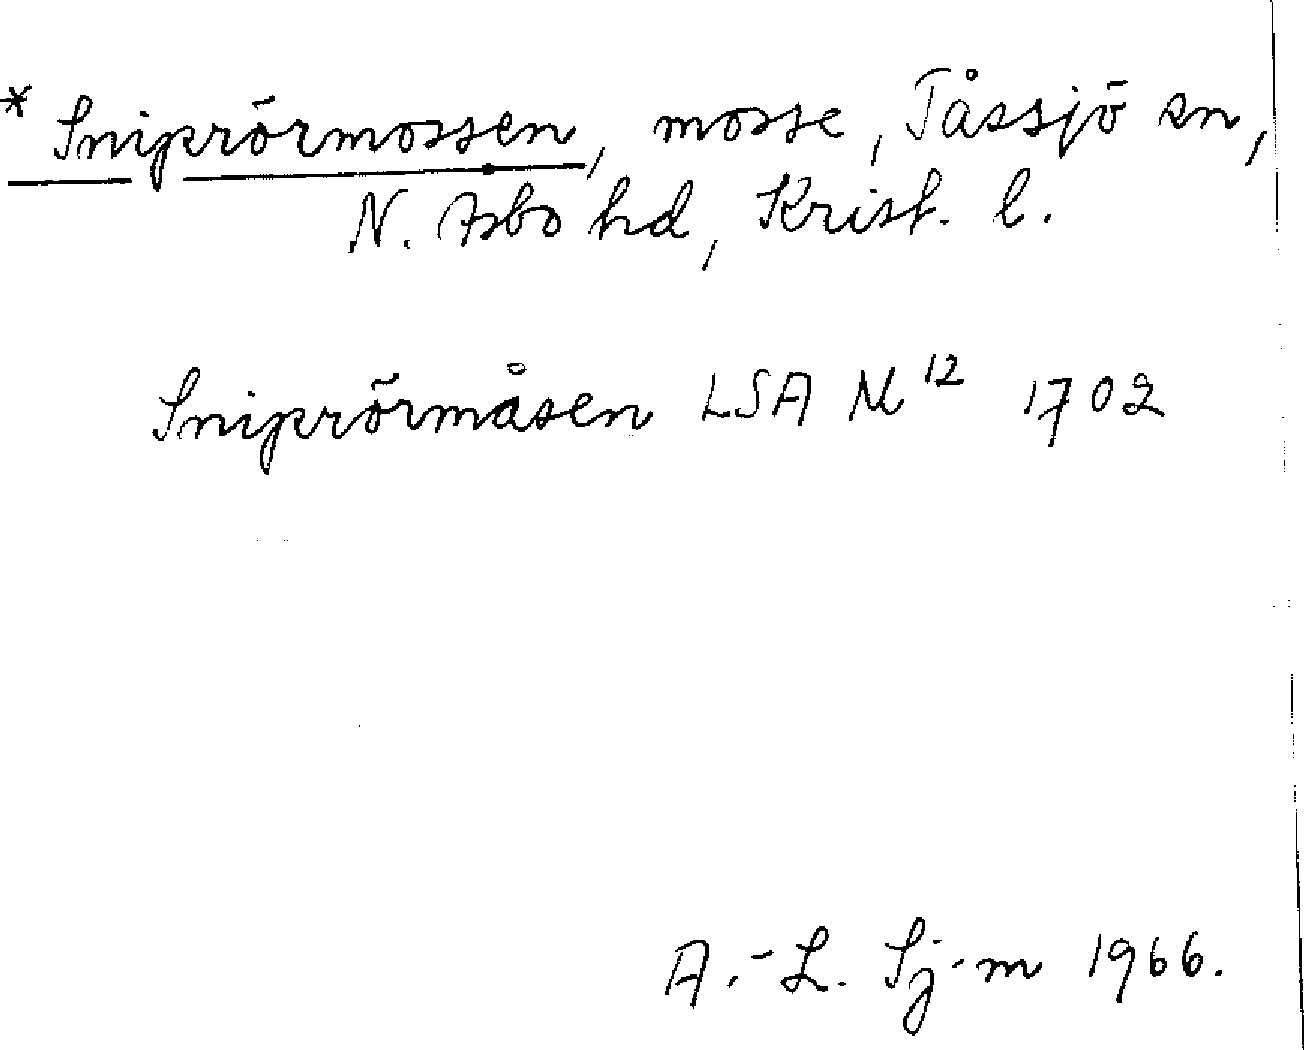 * Sniprörmossen, mosse, Tåssjö sn,
N. Åsbo hd, Krist. l.
Sniprörmåsen LSA M¹² 1702
A.-L. Sj-m 1966.